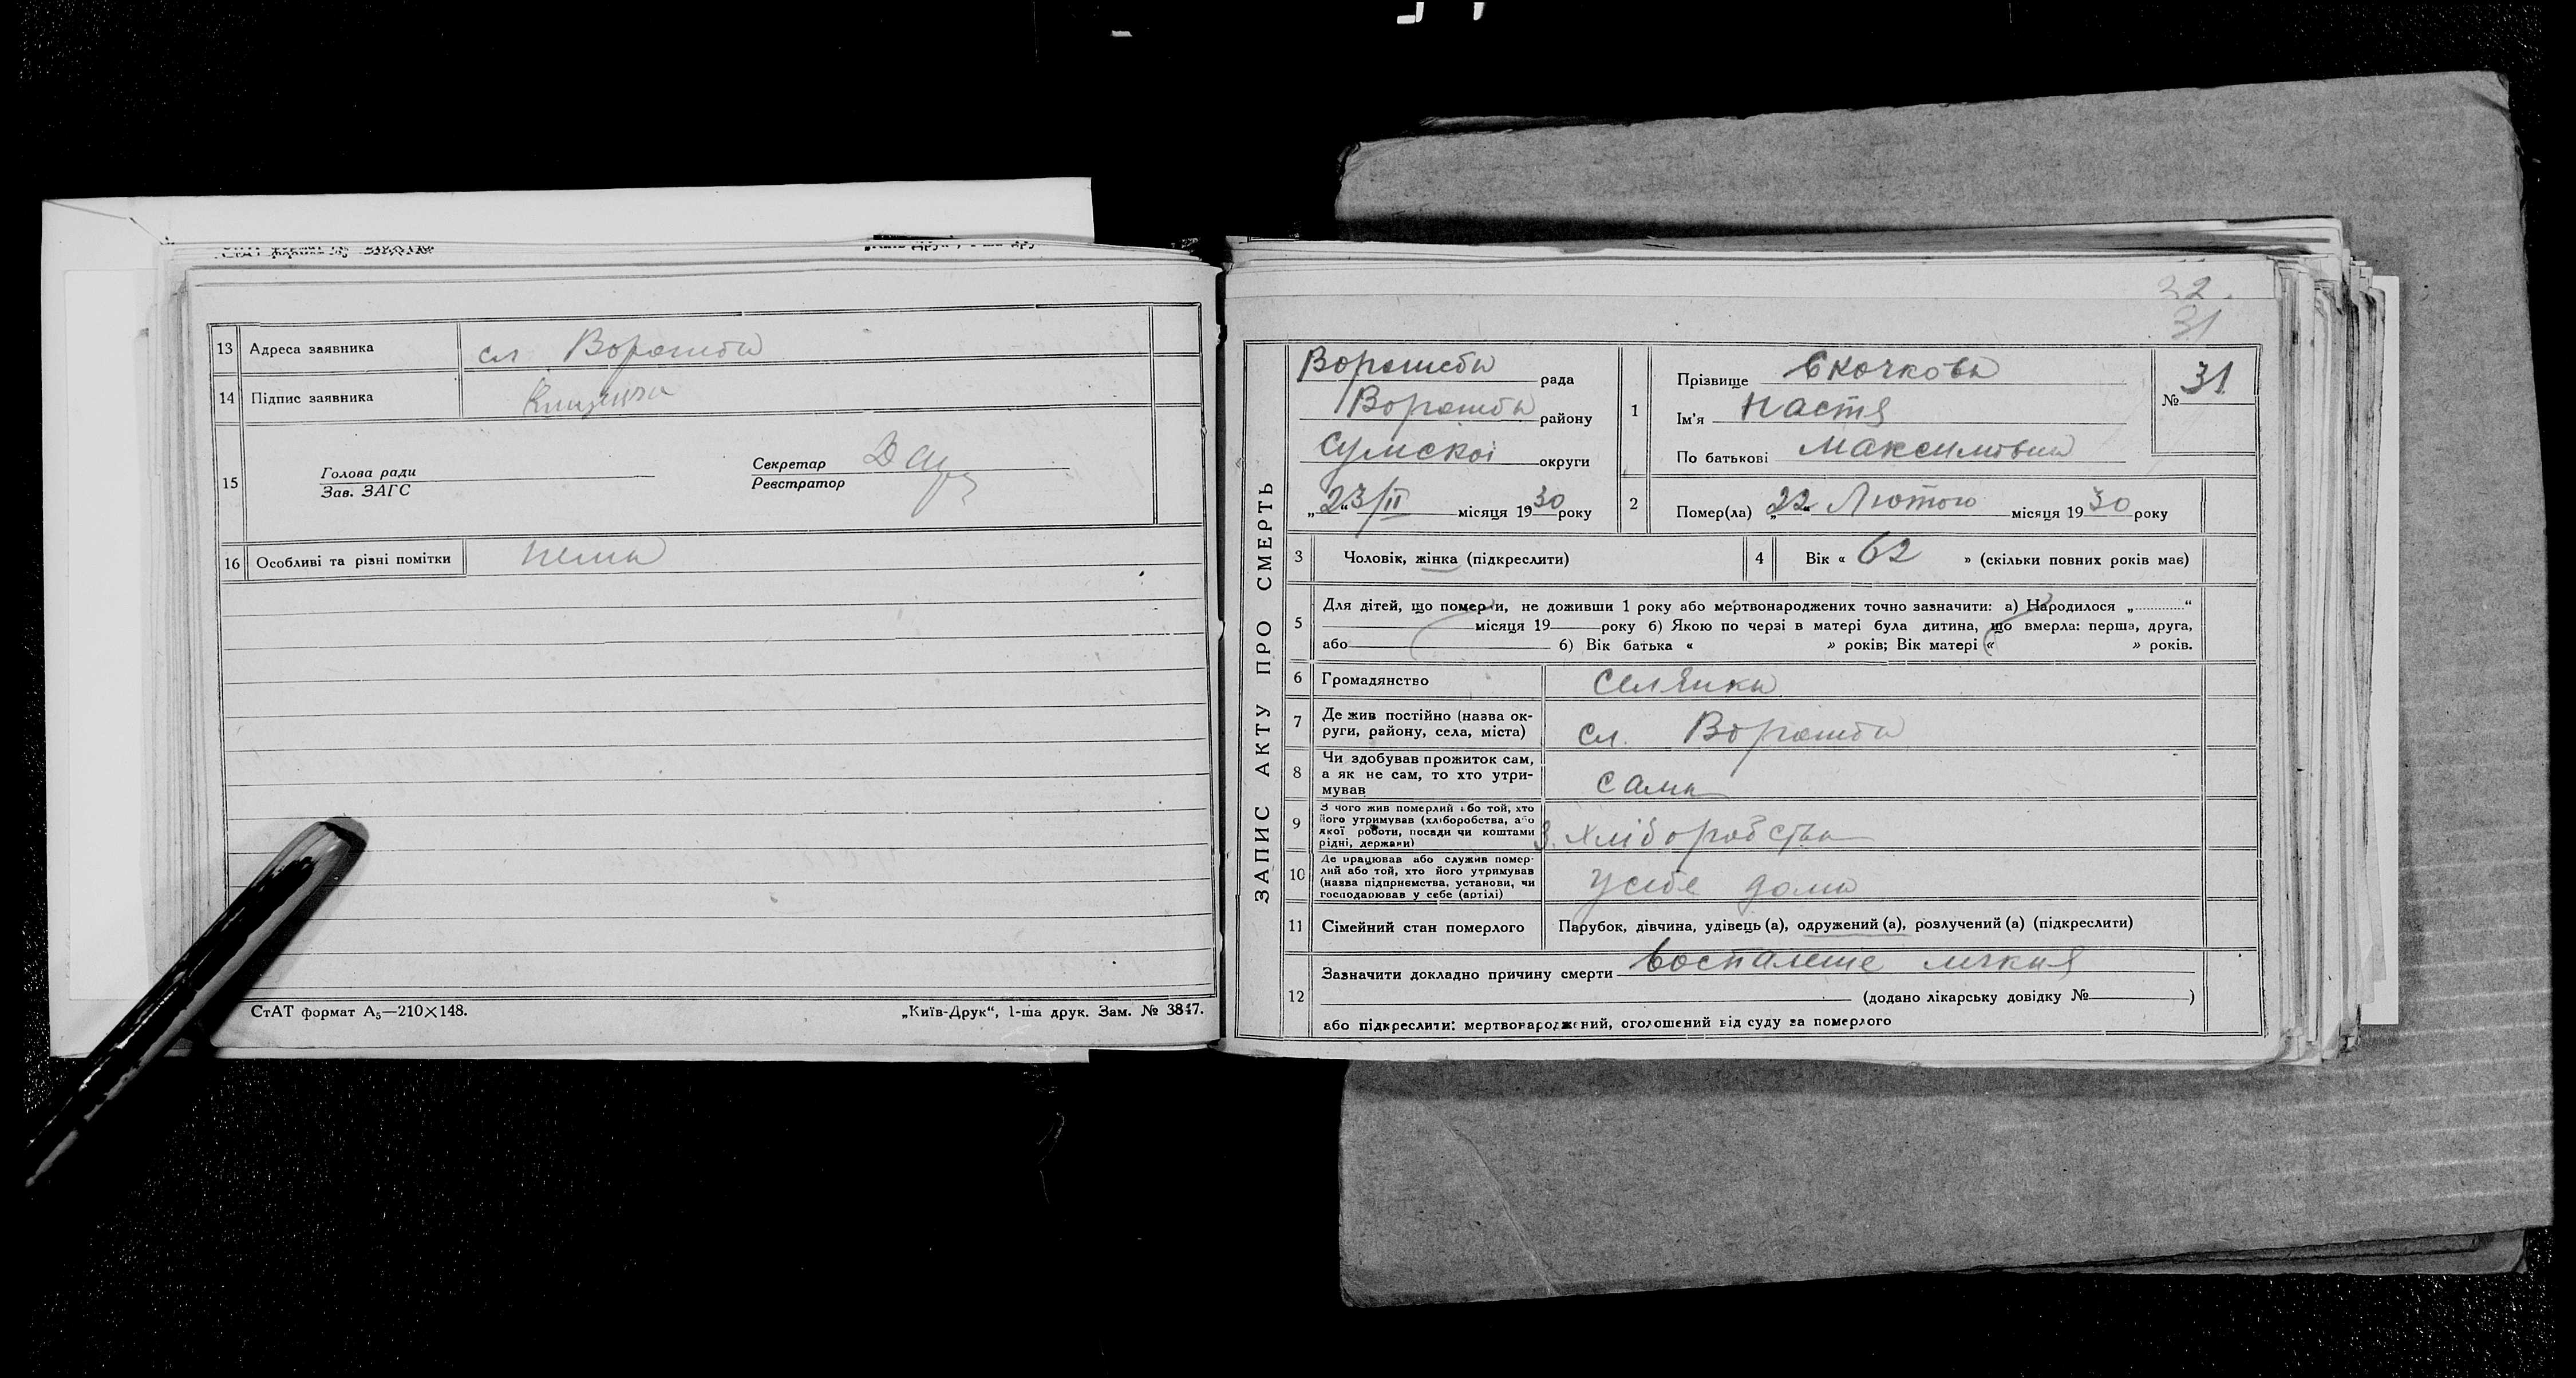 13 Адреса заявника сл Ворожба
14 Підпис заявника
15 Голова ради
Зав. ЗАГС
Секретар
Реєстратор
16 Особливі та різні помітки нема
СтАТ формат А5—210×148.
„Київ-Друк“, 1-ша друк. Зам. № 3847.
22
31
ЗАПИС АКТУ ПРО СМЕРТЬ
Ворожба рада
Ворожба району
Сумскої округи
„23/II місяця 1930 року
1 Прізвище Скочкова
Ім'я Настя
По батькові Максимовна
№ 31
2 Помер(ла) „22“ Лютого місяця 1930 року
3 Чоловік, жінка (підкреслити)
4 Вік « 62 » (скільки повних років має)
5 Для дітей, що померли, не доживши 1 року або мертвонароджених точно зазначити: а) Народилося „............“
місяця 19 року б) Якою по черзі в матері була дитина, що вмерла: перша, друга,
або б) Вік батька « » років; Вік матері « » років.
6 Громадянство Селянка
7 Де жив постійно (назва ок-
руги, району, села, міста) сл. Ворожба
8 Чи здобував прожиток сам,
а як не сам, то хто утри-
мував сама
9 З чого жив померлий або той, хто
його утримував (хліборобства, або
якої роботи, посади чи коштами
рідні, держави) З хліборобства
10 Де працював або служив помер-
лий або той, хто його утримував
(назва підприємства, установи, чи
господарював у себе (артілі) у себе дома
11 Сімейний стан померлого Парубок, дівчина, удівець (а), одружений (а), розлучений (а) (підкреслити)
12 Зазначити докладно причину смерти Воспаление
(додано лікарську довідку № )
або підкреслити: мертвонароджений, оголошений від суду за померлого